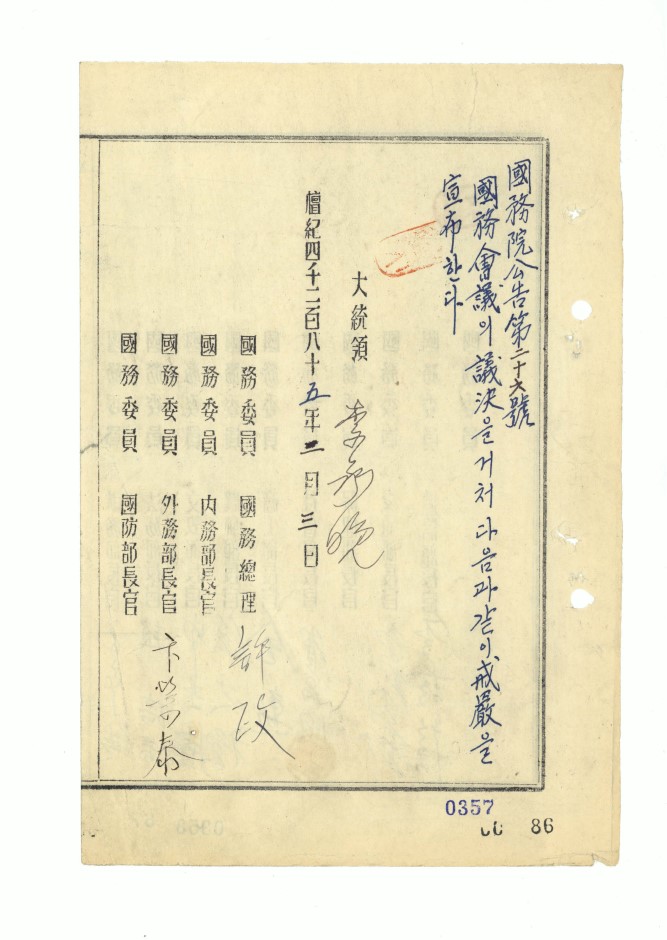 國務院公告第二十六號
國務會議의 議決을 거처 다음과 같이 戒嚴을
宣布한다
大統領 李承晩
檀紀四千二百八十五年二月三日
國務委員 國務總理 許政
國務委員 內務部長官
國務委員 外務部長官 卞榮泰
國務委員 國防部長官
0357
86